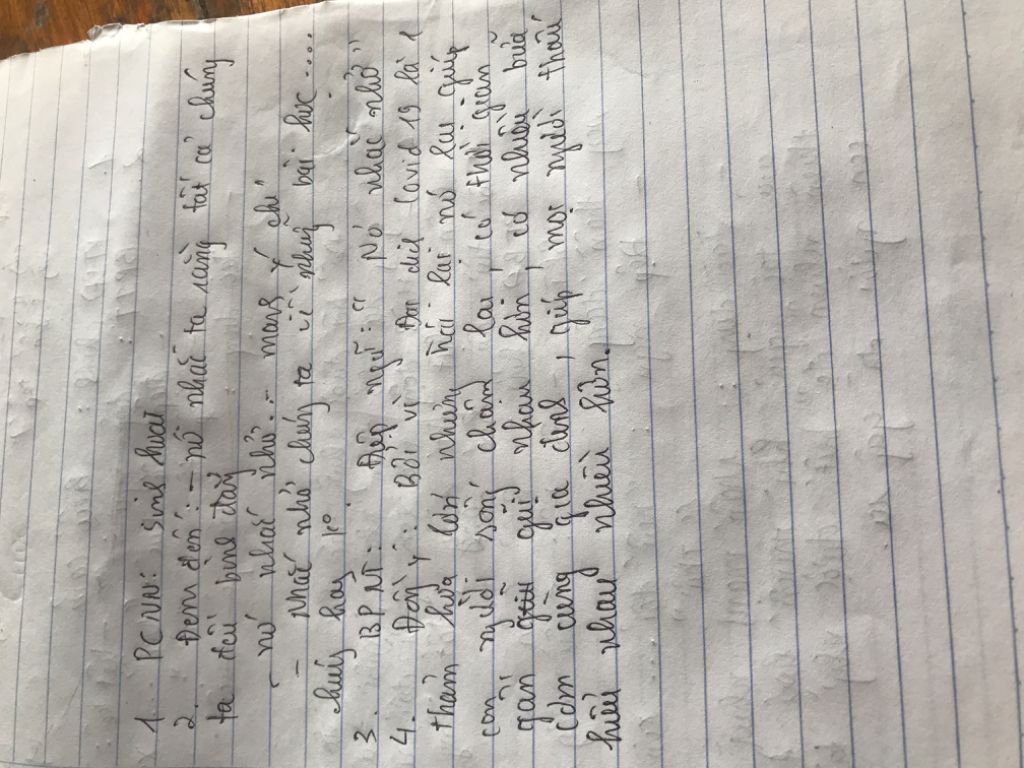 1. PCNN: sinh hoạt
2. Đem đến: - nó nhắc ta rằng tất cả chúng
ta đều bình đẳng
- nó nhắc nhở: - mang ý chí
- Nhắc nhở chúng ta về những bài học....
3. BPNT: Điệp ngữ: "Nó nhắc nhở"
4. Đồng ý: Bởi vì đại dịch Covid 19 là 1
thảm họa lớn nhưng lại nó lại giúp
con người sống chậm lại, có thời gian
gần gũi nhau hơn, có nhiều bữa
cơm cùng gia đình, giúp mọi người
hiểu nhau nhiều hơn.